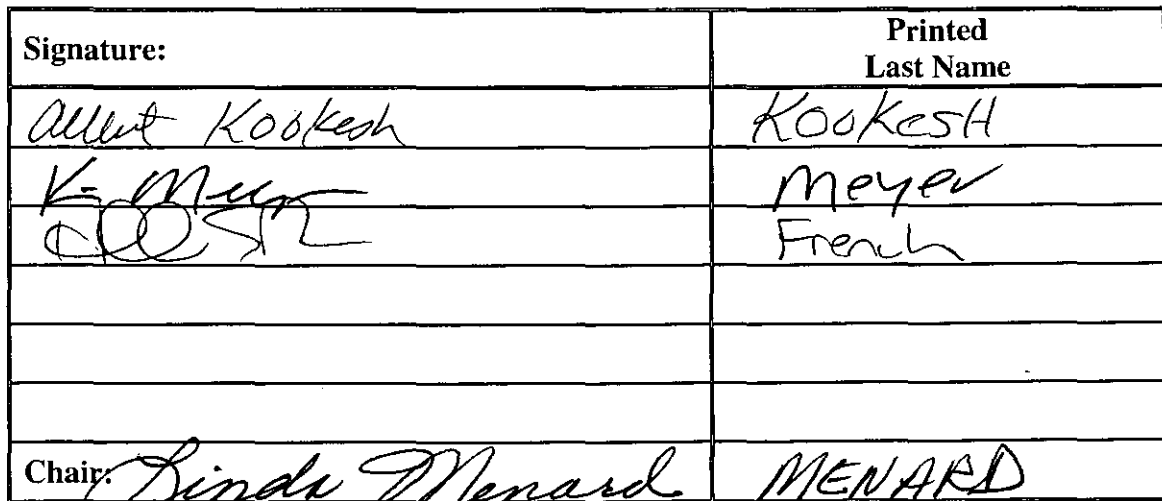 Signature: Printed Last Name
Albert Kookesh KooKesH
K Meyer Meyer
French
Chair: Linda Menard MENARD